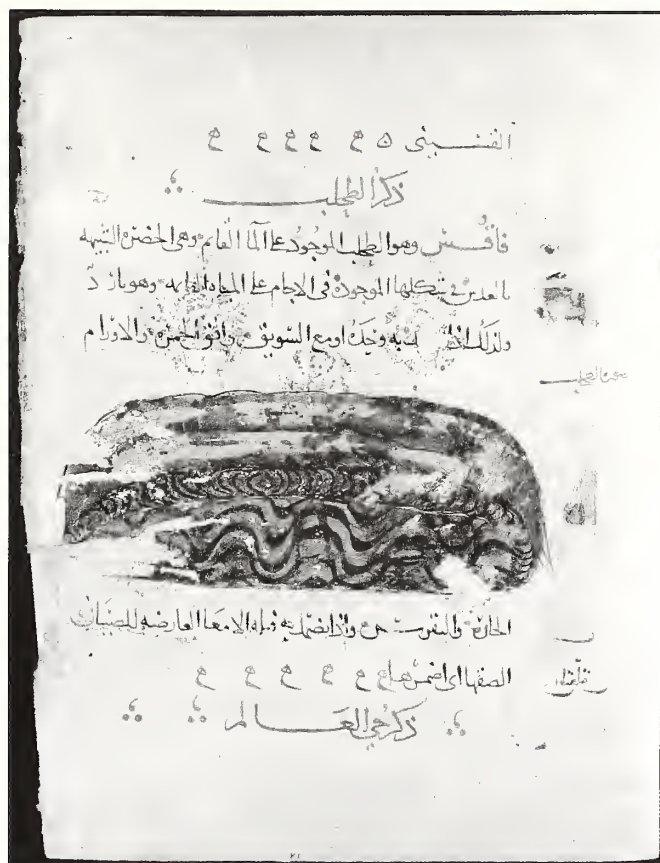 القـــيني ه ع ع ع ع ع
ذكر الطحلب
فاقُس وهو الطحلب الموجود على الما القائم وهى الخضره الشبيهه
بالعدس فى شكلها الموجودة فى الاجام على المياه القايمه وهو بارد
ولذلك اذا به وحده او مع السويق وافق الحمرة والاورام
صورة الطحلب
الحارة والنقرس واذا تضمد به قيله الامعا العارضه للصبيان
الصقها اى اضمرها ع ع ع ع ع ع
ذكر حى العالم